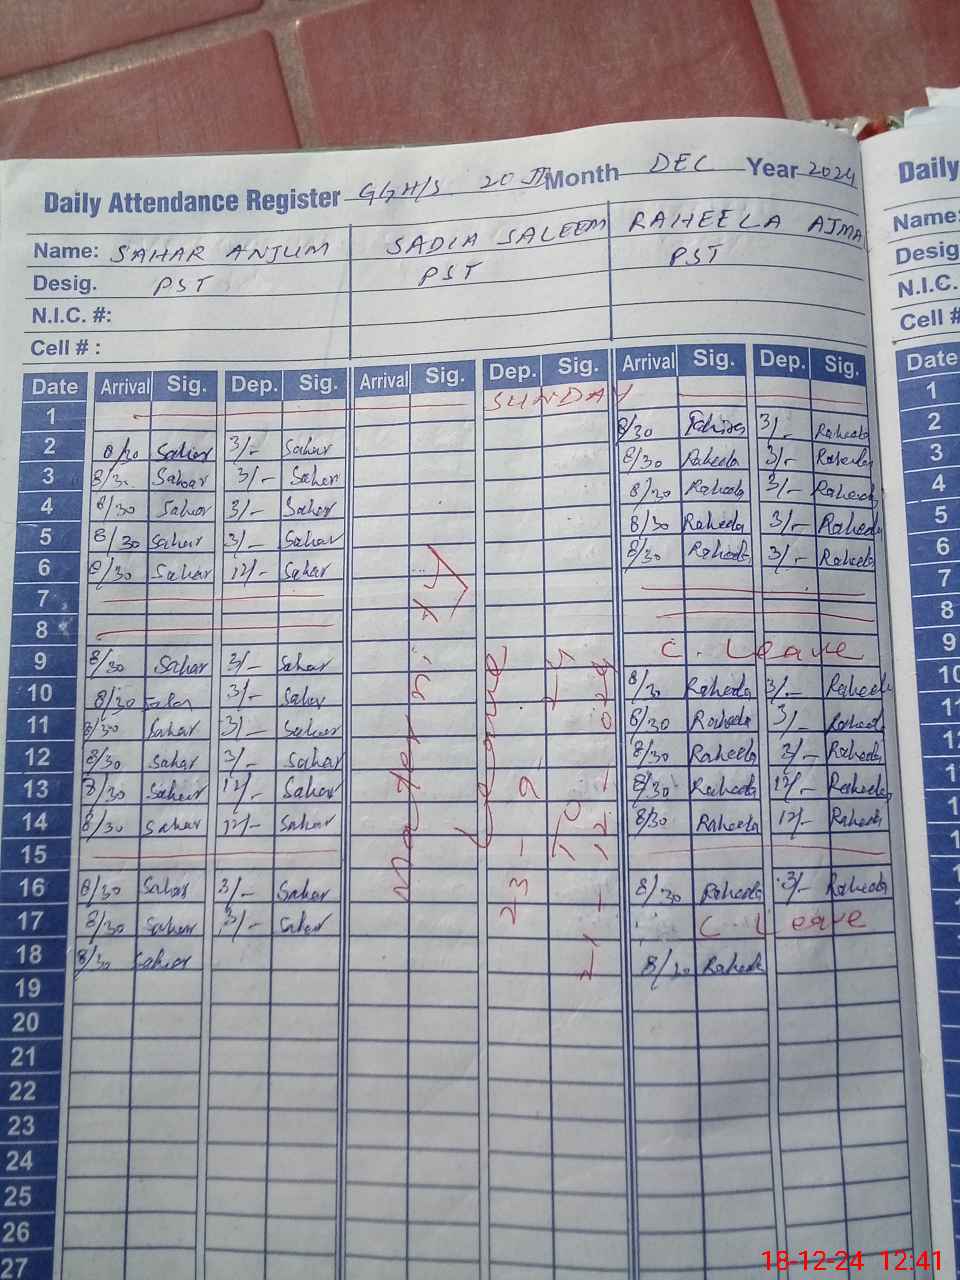 Daily Attendance Register GGH/S 20 II Month DEC Year 2024 Daily
Name: SAHAR ANJUM SADIA SALEEM RAHEELA AJMA Name:
Desig. PST PST PST Desig
N.I.C. #: N.I.C.
Cell # : Cell #
Date Arrival Sig. Dep. Sig. Arrival Sig. Dep. Sig. Arrival Sig. Dep. Sig. Date
1 SUNDAY 1
2 8/30 Sahar 3/- Sahar 8/30 3/- Raheela 2
3 8/30 Sahar 3/- Sahar 8/30 Raheela 3/- Raheela 3
4 8/30 Sahar 3/- Sahar 8/30 Raheela 3/- Raheela 4
5 8/30 Sahar 3/- Sahar 8/30 Raheela 3/- Raheela 5
6 8/30 Sahar 12/- Sahar 8/30 Raheela 3/- Raheela 6
7 7
8 8
9 8/30 Sahar 3/- Sahar C. Leave 9
10 8/30 Sahar 3/- Sahar 8/30 Raheela 3/- Raheela 10
11 8/30 Sahar 3/- Sahar 8/30 Raheela 3/- Raheela 11
12 8/30 Sahar 3/- Sahar 8/30 Raheela 3/- Raheela 12
13 8/30 Sahar 12/- Sahar 8/30 Raheela 12/- Raheela 1
14 8/30 Sahar 12/- Sahar 8/30 Raheela 12/- Raheela 1
15 1
16 8/30 Sahar 3/- Sahar 8/30 Raheela 3/- Raheela
17 8/30 Sahar 3/- Sahar C. Leave
18 8/30 Sahar 8/30 Raheela
19
20
21
22
23
24
25
26
27
Leave
23-9-24
TO
21-12-2024
18-12-24 12:41